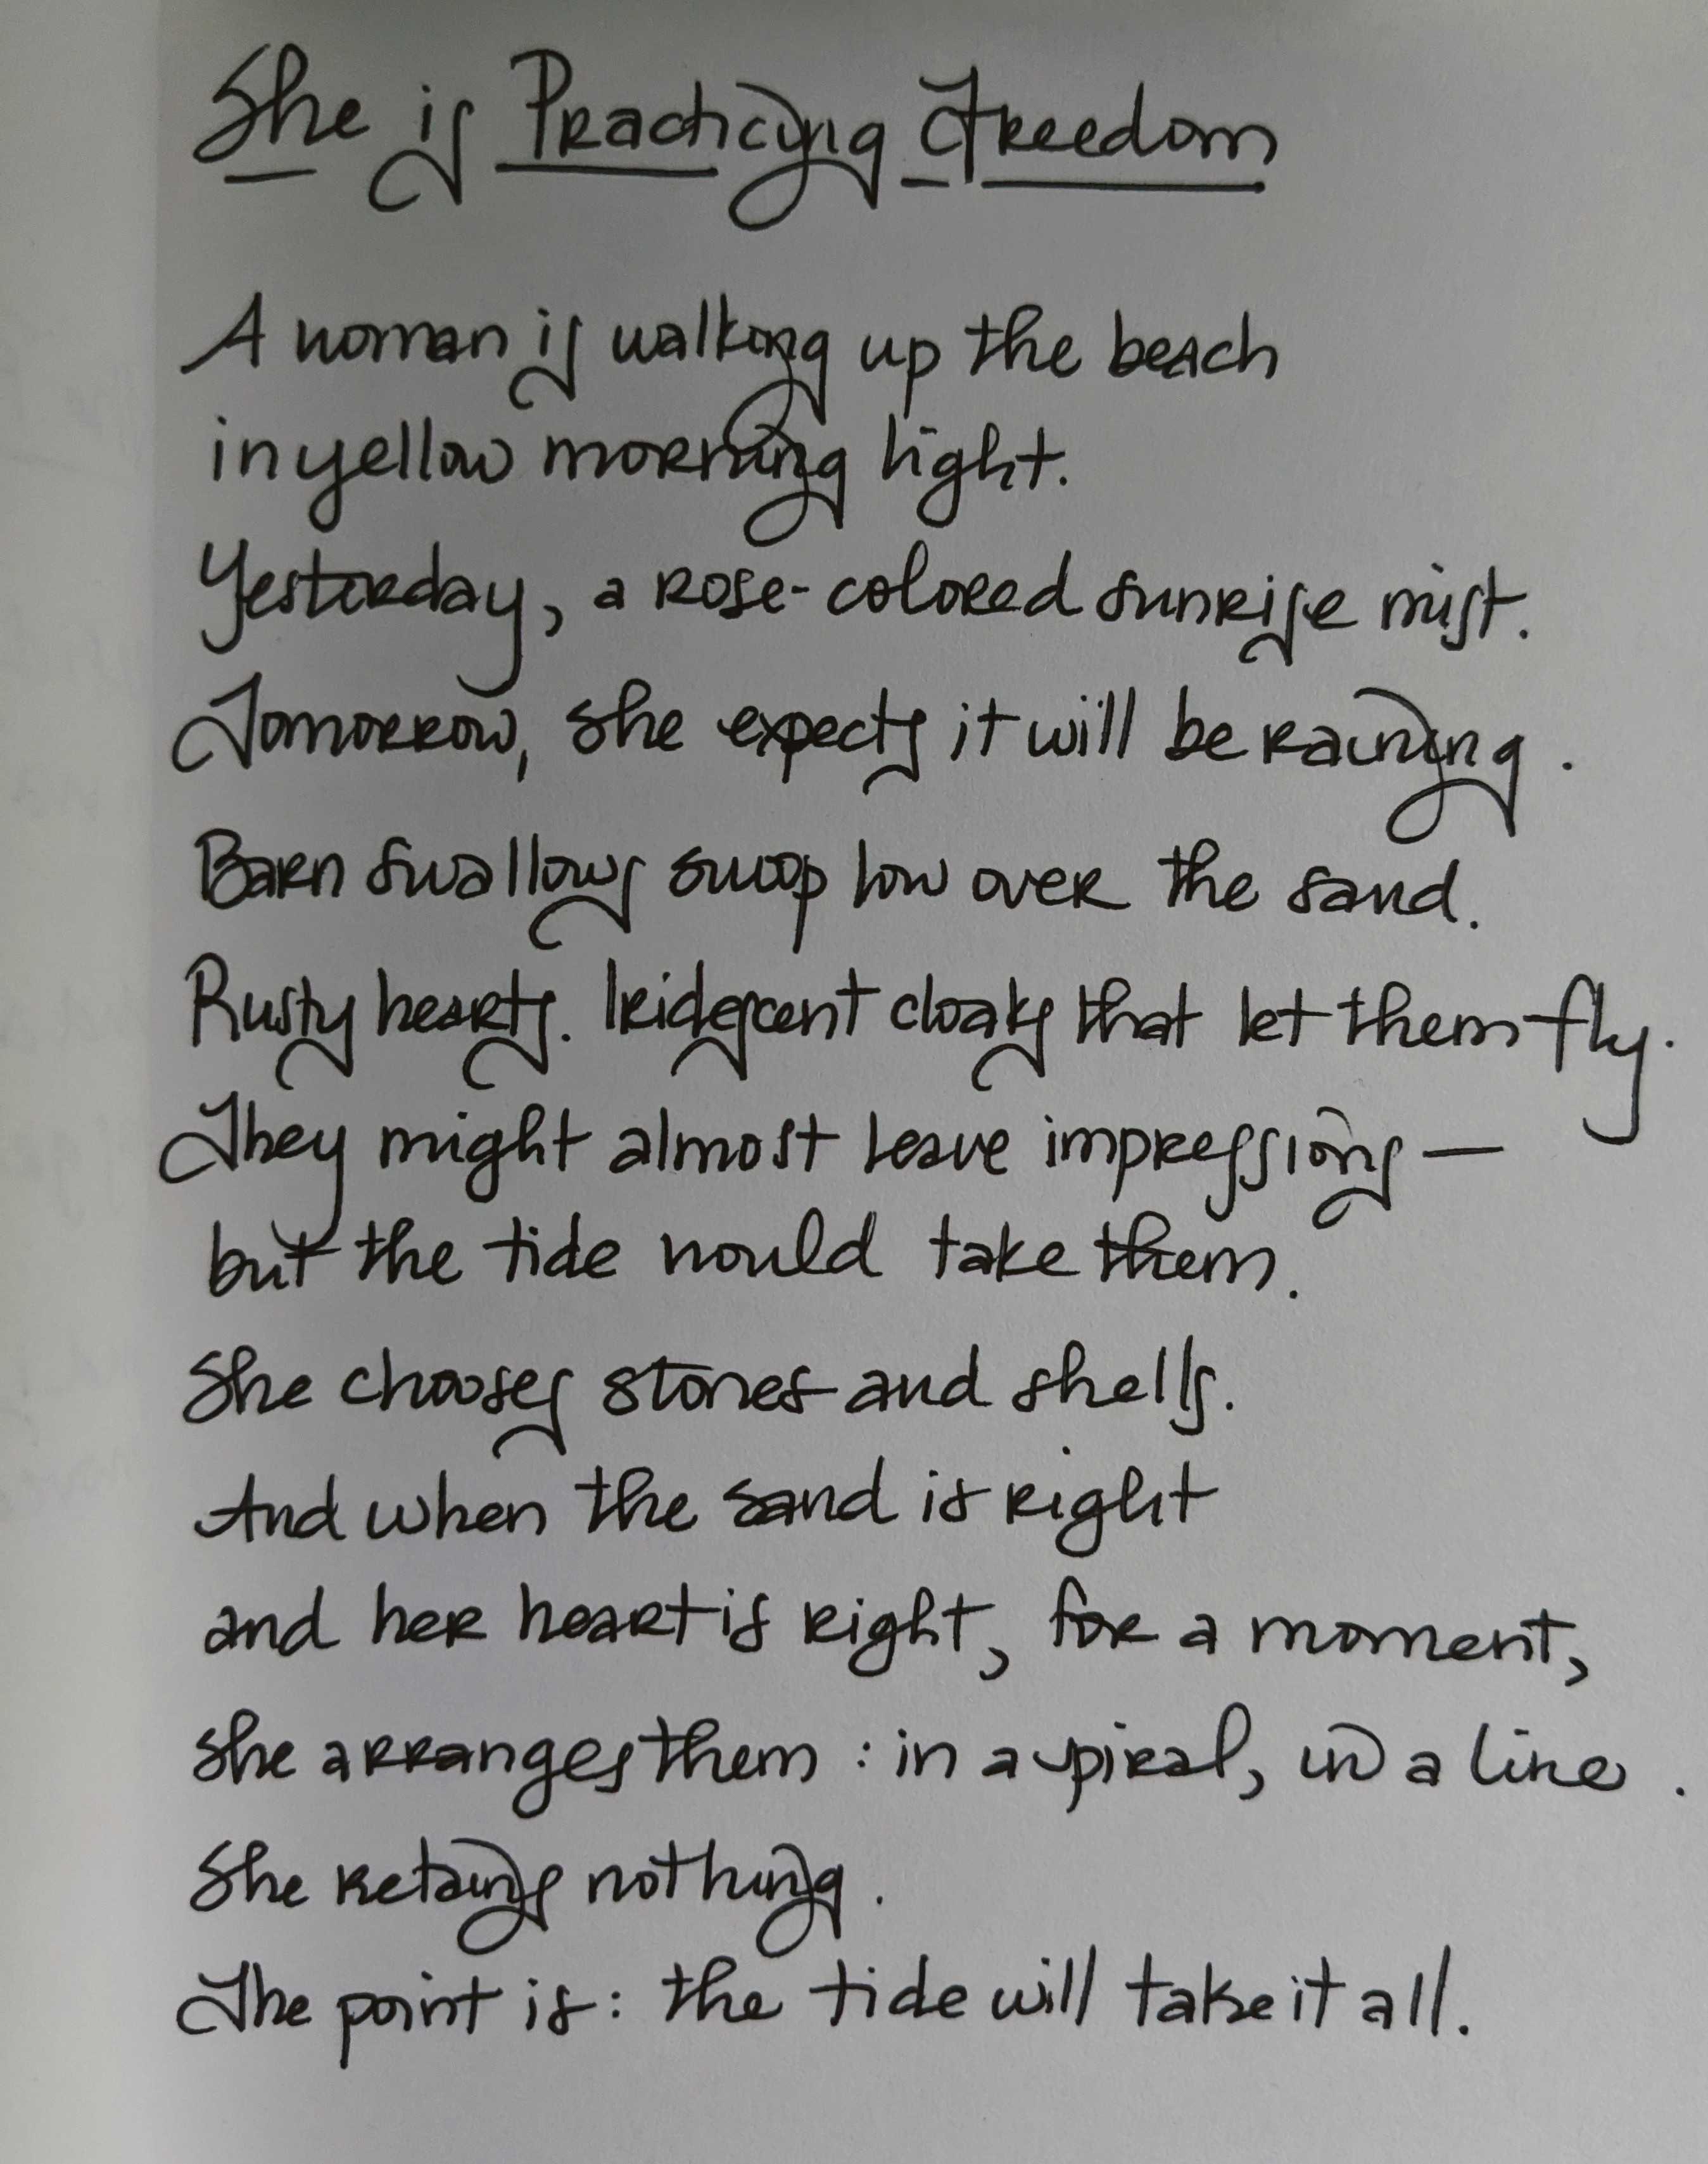 She is Practicing Freedom
A woman is walking up the beach
in yellow morning light.
Yesterday, a rose-colored sunrise mist.
Tomorrow, she expects it will be raining.
Barn swallows swoop low over the sand.
Rusty hearts. Iridescent cloaks that let them fly.
They might almost leave impressions —
but the tide would take them.
She chooses stones and shells.
And when the sand is right
and her heart is right, for a moment,
she arranges them: in a spiral, in a line.
She retains nothing.
The point is: the tide will take it all.